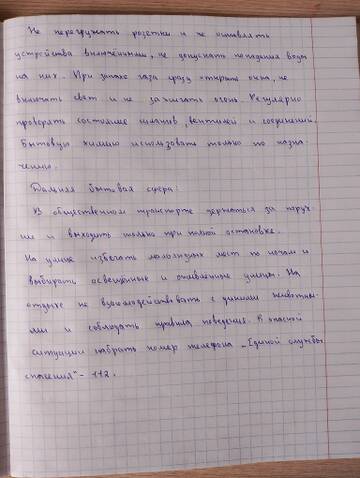 Не перегружать розетки и не оставлять
устройства включёнными, не допускать попадания воды
на них. При запахе газа сразу открыть окна, не
включать свет и не зажигать огонь. Регулярно
проверять состояние шлангов, вентилей и соединений.
Бытовую химию использовать только по назна-
чению.
Дальняя бытовая сфера:
В общественном транспорте держаться за поруч-
ни и выходить только при полной остановке.
На улице избегать малолюдных мест по ночам и
выбирать освещённые и оживлённые улицы. На
отдыхе не взаимодействовать с дикими животны-
ми и соблюдать правила поведения. В опасной
ситуации набрать номер телефона „Единой службы
спасения" - 112.